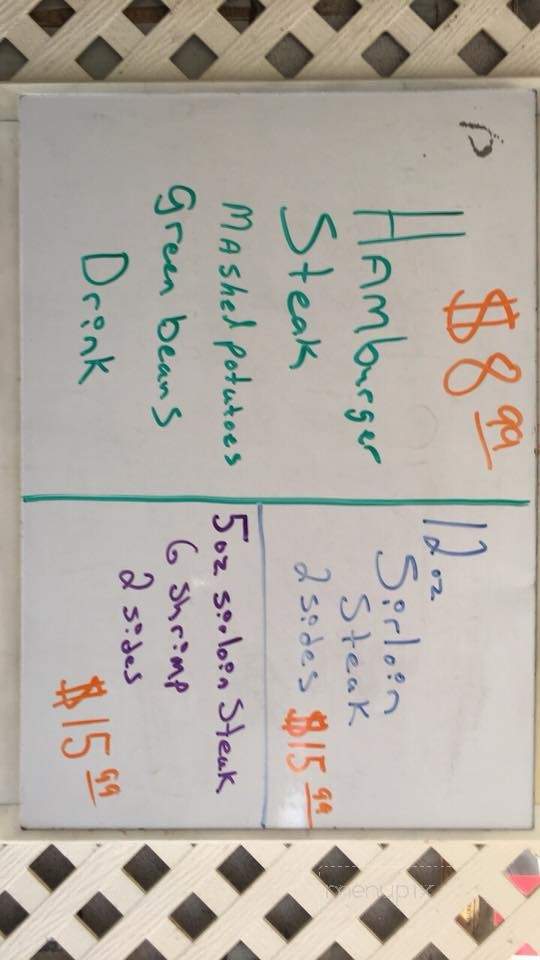 $8.99
HAMburger
Steak
MAshed potatoes
green beans
Drink
12 oz
Sirloin
Steak
2 sides $15.99
5 oz sirloin Steak
6 shrimp
2 sides
$15.99
menupix